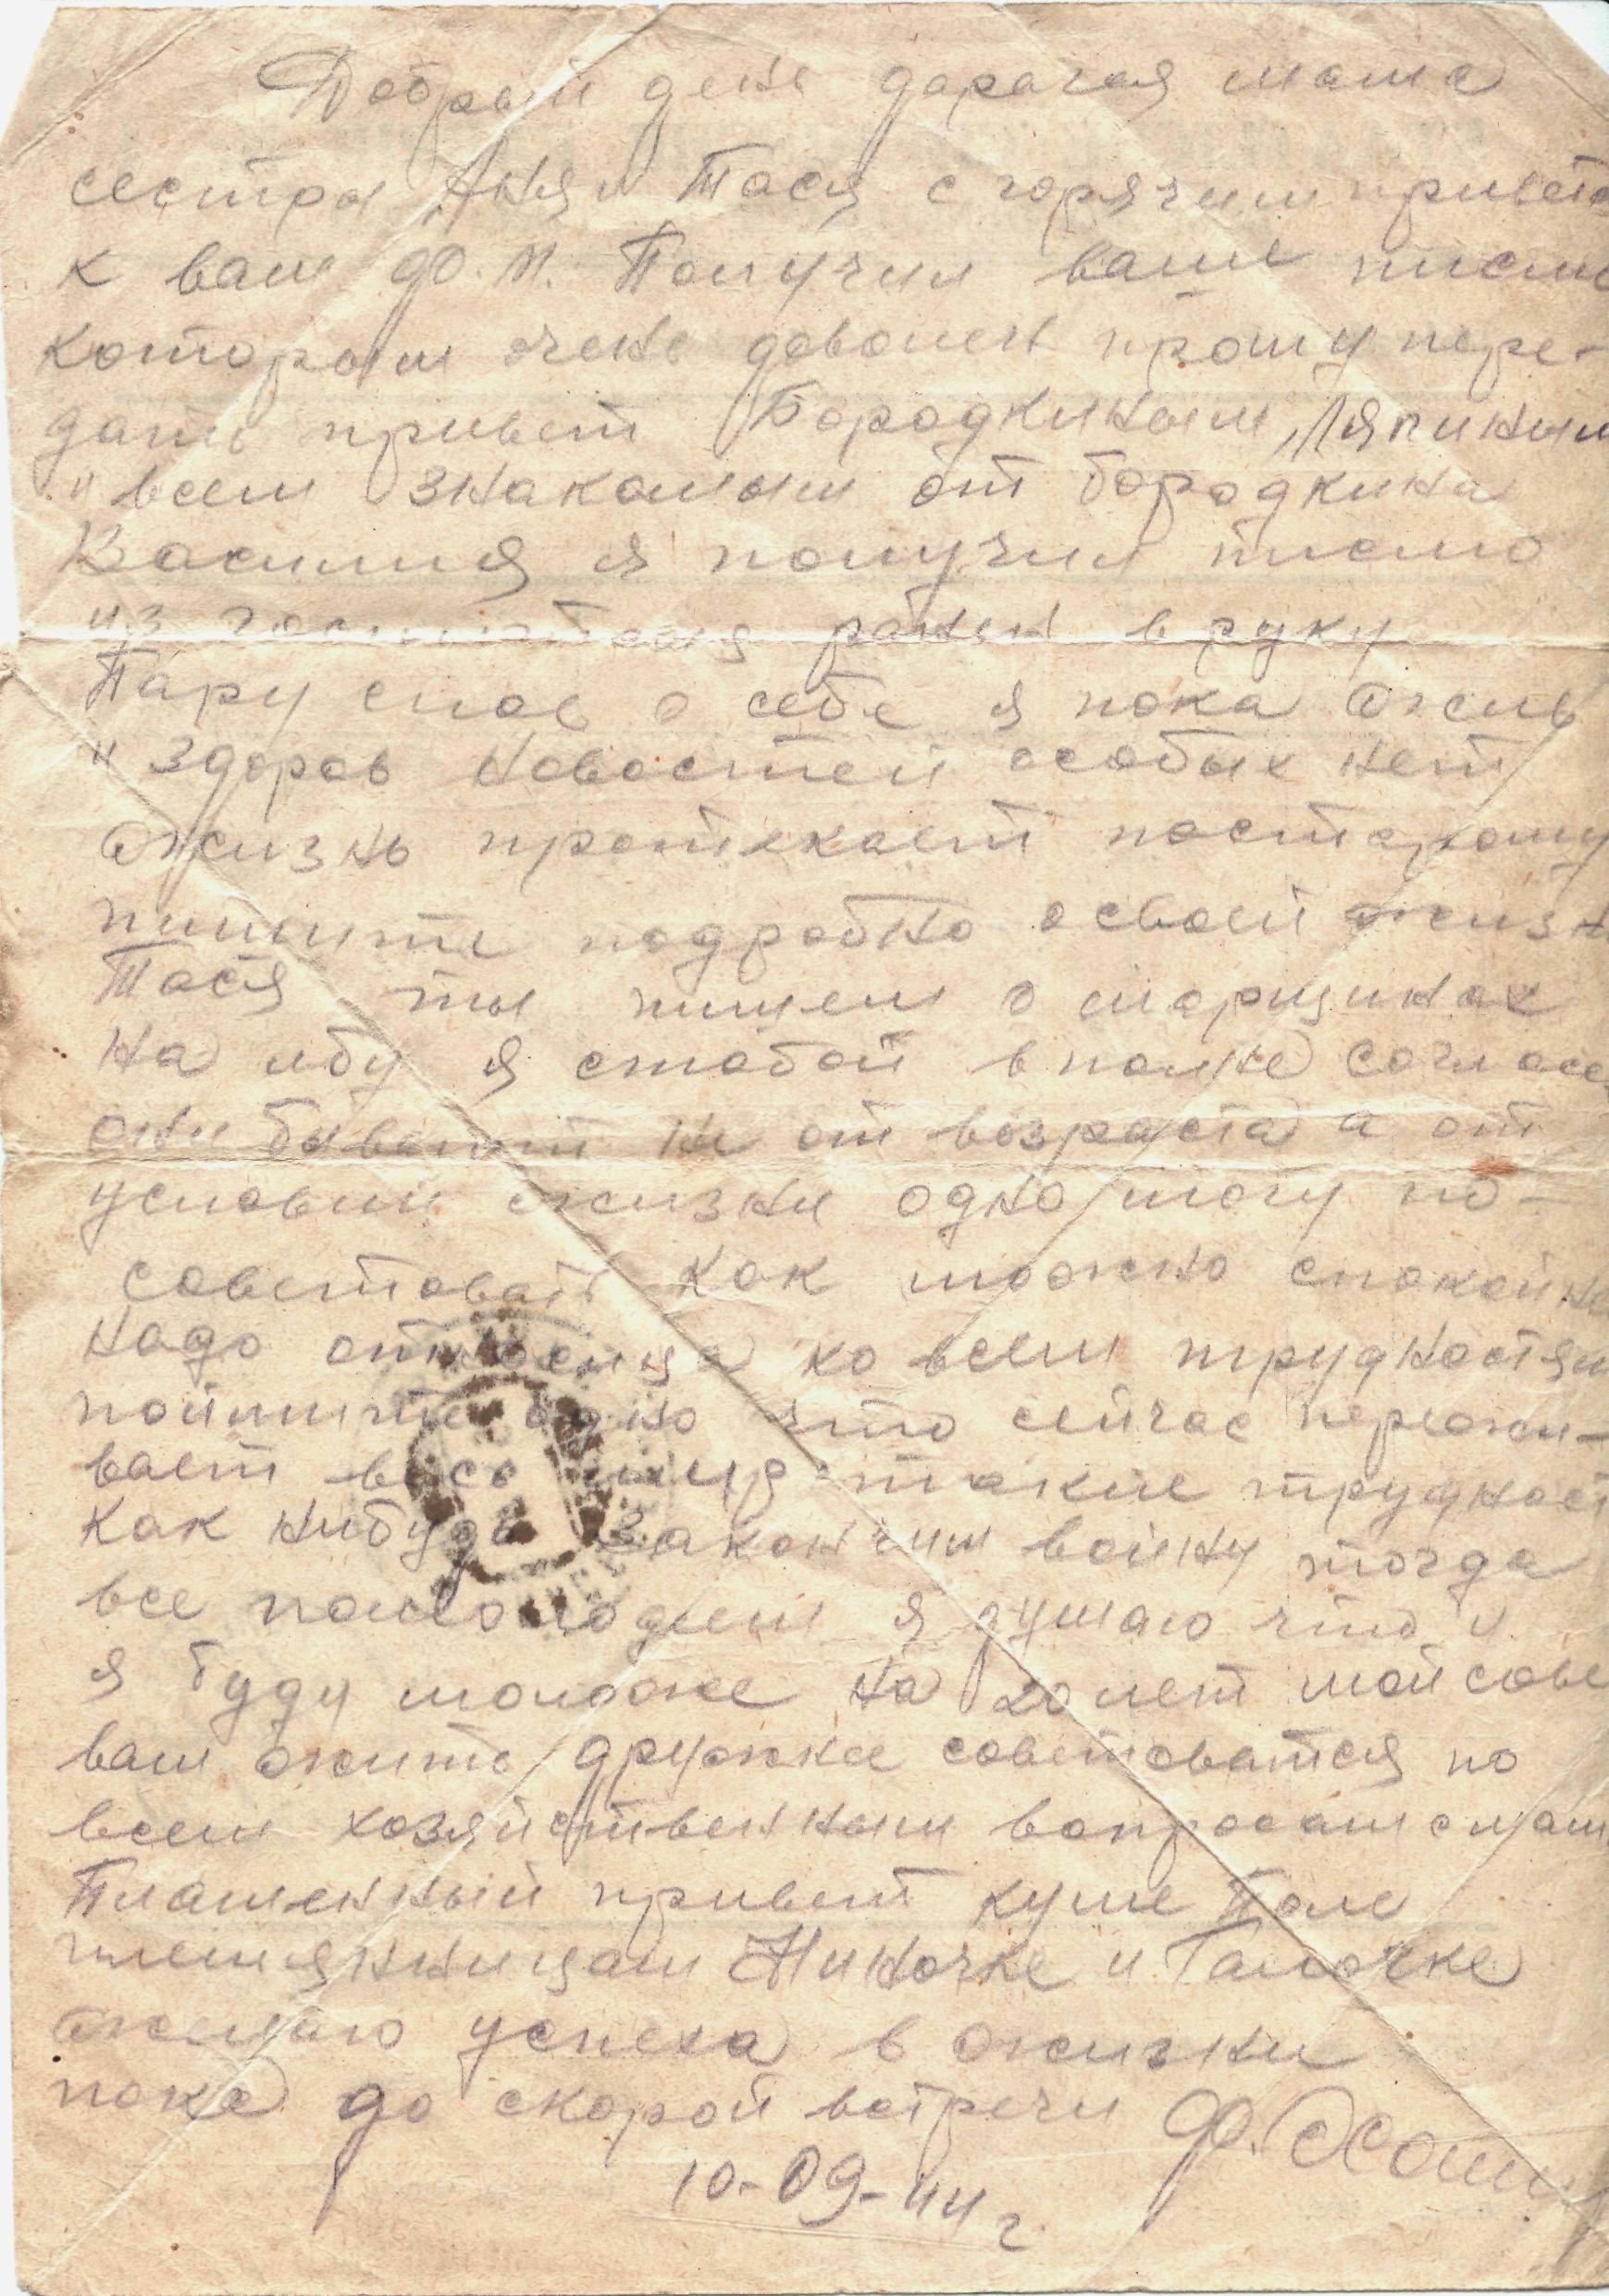 Добрый день дарагая мама
сестры Аня и Тася с горячим привето
к вам Ф.М. Получил ваше писмо
которым очень доволен прошу пере-
дать привет Бородкиным, Ляпиным
и всем знакомым от бородкина
Василия я получил писмо
из госпиталя ранен в руку
Пару слов о себе я пока жив
и здоров новостей особых нет
жизнь протекает постарому
пишите подробно о своей жизн
Тася ты пишеш о марщинах
на лбу я стобой вполне согласе
они бывают не от возраста а от
условий жизни одно могу по-
советовать как можно спокойно
надо относица ко всем трудностям
поймите одно что сейчас пережи-
вает весь мир такие трудност
как нибудь закончим войну тогда
все помолодеем я думаю что и
я буду моложе на 20 лет мой сове
вам жить дружнее советоватся по
всем хозяйственным вопросам с мам
Пламенный привет куме Поле
племянницам Ниночке и Галочке
желаю успеха в жизни
пока до скорой встречи Ф.
10-09-44 г